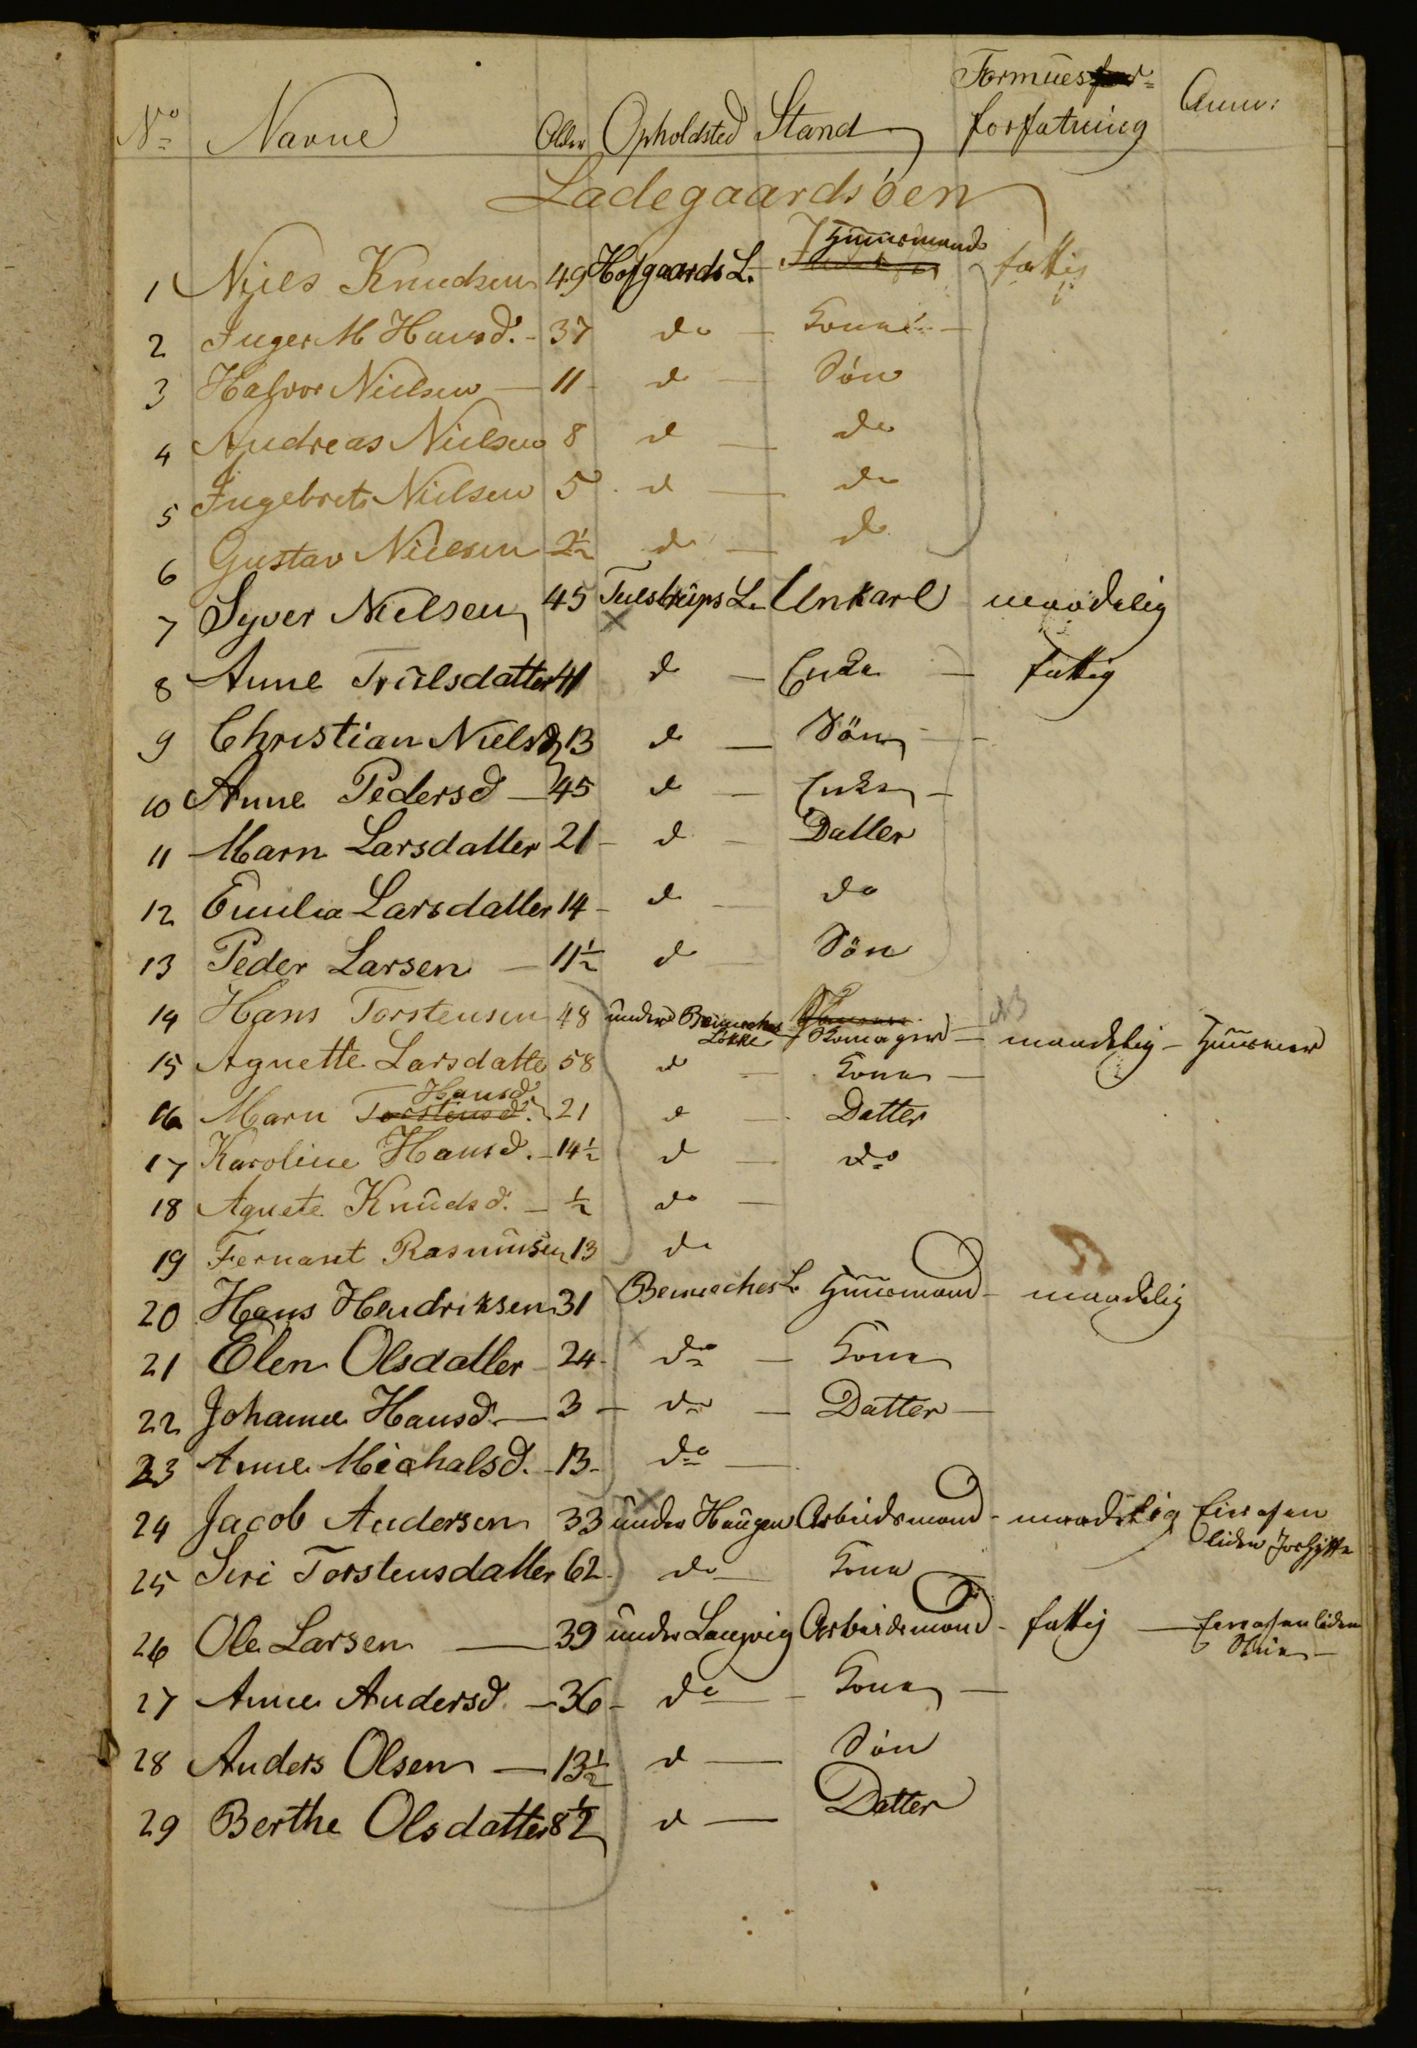 No Navne Alder Opholdsted Stand Formues forfatning Anm:
Ladegaardsöen
1 Niels Knudsen 49 Hofgaards L. Huusmand fattig
2 Inger M Hansd. - 37 do - Kone -
3 Halvor Nielsen - 11 - d - Søn
4 Andreas Nielsen 8 d - do
5 Ingebret Nielsen 5 d - do
6 Gustav Nielsen 2½ d - d
7 Syver Nielsen 45 Tulstrüps L. Unkarl maadelig
8 Anne Trülsdatter 41 d - Enke - fattig
9 Christian Niels 13 d - Sön -
10 Anne Pedersd - 45 d - Enke -
11 Marn Larsdatter 21 - d - Datter
12 Emilia Larsdatter 14 - d - do
13 Peder Larsen - 11½ d - Sön
14 Hans Torstensen 48 under Løkke Skomager - maadelig - Huusmand
15 Agnette Larsdatte 58 d - Kone -
16 Marn Torstensd. Hansd. 21 d - Datter
17 Karoline Hansd. - 14½ d - do
18 Agnete Knüdsd. - ½ do -
19 Fernant Rasmüsen 13 do
20 Hans Hendriksen 31 L. Huusmand - maadelig
21 Elen Olsdatter 24 - do - Kone
22 Johanne Hansd. - 3 - do - Datter -
23 Anne Michalsd. - 13 - do -
24 Jacob Andersen 33 under Haügen Arbeidsmand - maadelig
25 Siri Torstensdatter 62 - do - Kone -
26 Ole Larsen - 39 under Langvig Arbeidsmand - fattig -
27 Anne Andersd. - 36 - do - Kone -
28 Anders Olsen - 13½ d - Søn
29 Berthe Olsdatter 8½ d - Datter